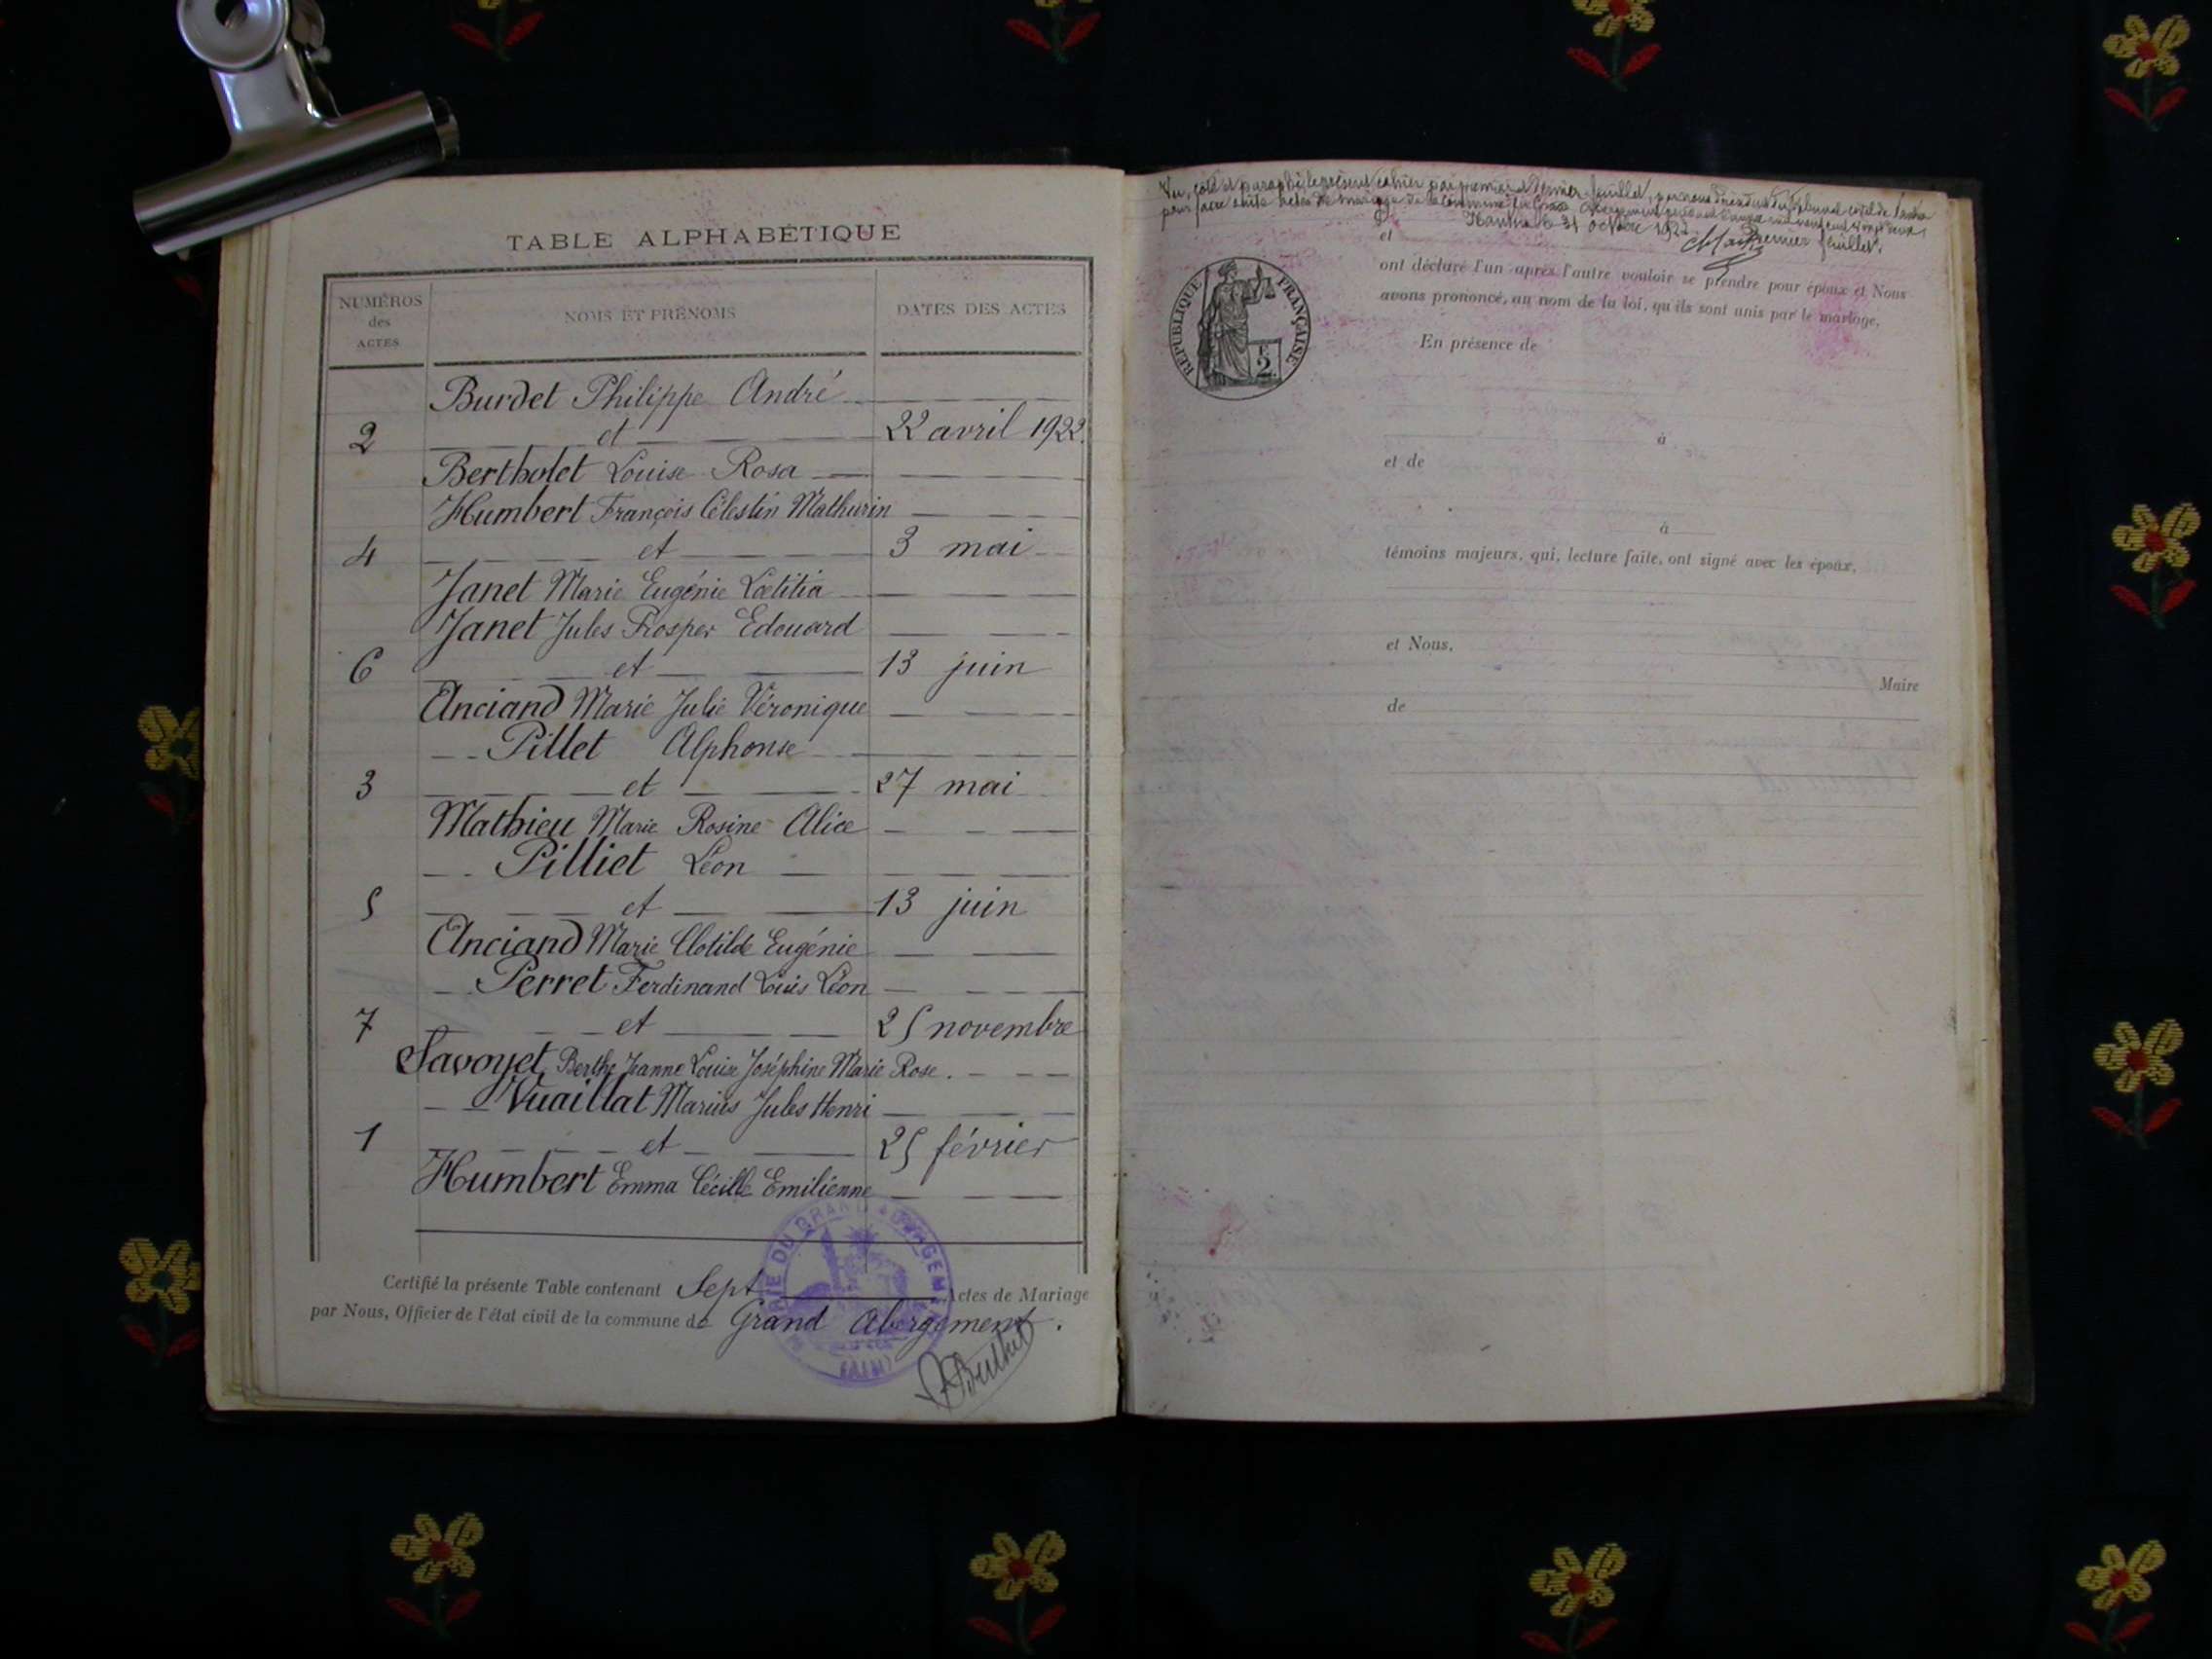 TABLE ALPHABÉTIQUE
NUMÉROS
des
ACTES
NOMS ET PRÉNOMS
DATES DES ACTES
Burdet Philippe André
2 et 22 avril 1922.
Bertholet Louise Rosa
Humbert François Célestin Mathurin
4 et 3 mai
Janet Marie Eugénie Lœtitia
Janet Jules Prosper Edouard
6 et 13 juin
Anciand Marie Julie Véronique
Pillet Alphonse
3 et 27 mai
Mathieu Marie Rosine Alice
Pilliet Léon
5 et 13 juin
Anciand Marie Clotilde Eugénie
Perret Ferdinand Louis Léon
7 et 25 novembre
Savoyet Berthe Jeanne Louise Joséphine Marie Rose.
Vuaillat Marius Jules Henri
1 et 25 février
Humbert Emma Cécille Emilienne
Certifié la présente Table contenant Sept Actes de Mariage
par Nous, Officier de l'état civil de la commune de Grand Abergement.
MAIRIE DU GRAND ABERGEMENT
(AIN)
Vu, coté et paraphé le présent cahier par premier et dernier feuillet, par nous Président du Tribunal civil de Nantua
pour servir aux actes de mariage de la commune du Grand Abergement pendant l'année mil neuf cent vingt deux,
Nantua le 31 octobre 1921
Premier feuillet.
et
RÉPUBLIQUE FRANÇAISE
2 F.
ont déclaré l'un après l'autre vouloir se prendre pour époux et Nous
avons prononcé, au nom de la loi, qu'ils sont unis par le mariage,
En présence de
à
et de
à
témoins majeurs, qui, lecture faite, ont signé avec les époux,
et Nous,
Maire
de